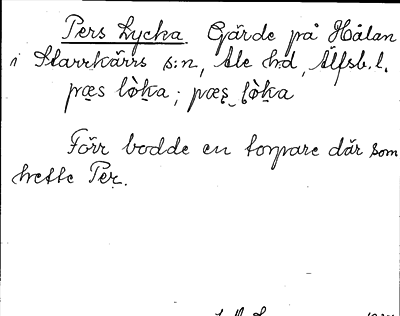 Pers Lycka. Gärde på Hålan
i Starrkärrs s:n, Ale h:d, Älfsb. l.
pæs lòka; pæs lòka
Förr bodde en torpare där som
hette Per.